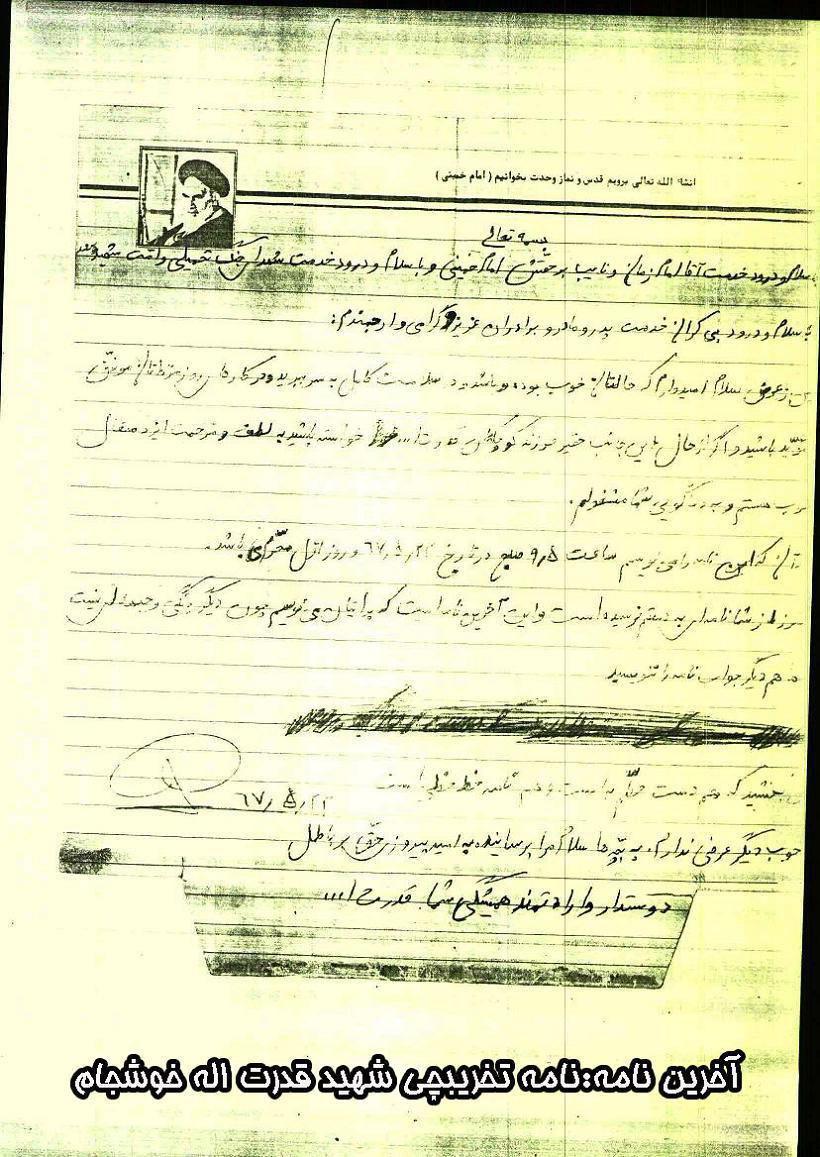 انشاء الله تعالی برویم قدس و نماز وحدت بخوانیم (امام خمینی)
بسمه تعالی
سلام و درود خدمت آقا امام زمان و نایب برحقش امام خمینی و با سلام و درود خدمت شهدای جنگ تحمیلی و امت شهید
با سلام و درود بی کران خدمت پدر و مادر و برادران عزیز و گرامی و ارجمندم:
عرض سلام امیدوارم که حالتان خوب بوده باشد و سلامت کامل به سر ببرید و در کارهای روزمره تان موفق
مؤید باشید و اگر از حال اینجانب حقیر فرزند کوچکتان قدرت ا... خواسته باشید به لطف و مرحمت ایزد متعال
خوب هستم و به دعاگویی شما مشغولم.
الآن که این نامه را می نویسم ساعت ۹٫۵ صبح در تاریخ ۶۷٫۵٫۲۳ و روز اول محرم می باشد.
از شما نامه ای به دستم نرسیده است و این آخرین نامه است که برایتان می نویسم چون دیگر
هم دیگر جواب نامه را ننویسید
ببخشید که هم دست خطم بد است و هم نامه خط خطی است
۶۷٫۵٫۲۳
خوب دیگر عرضی ندارم. به بچه ها سلام مرا برسانید به امید پیروزی حق بر باطل
دوستدار و ارادتمند همیشگی شما قدرت ا...
آخرین نامه:نامه تخریبچی شهید قدرت اله خوشجام